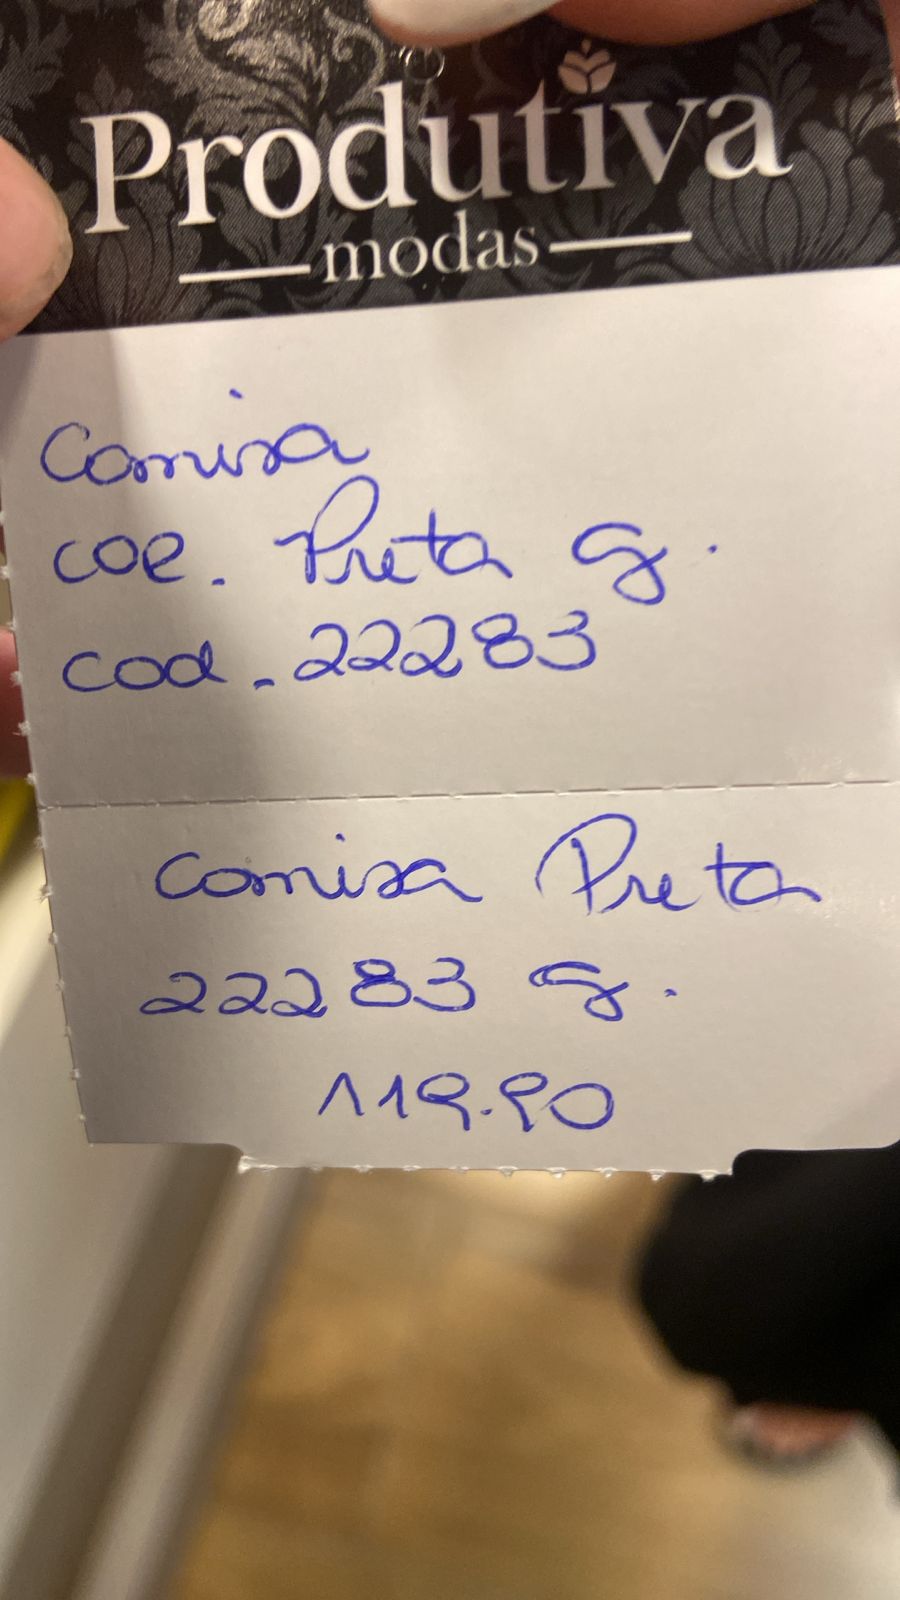 Produtiva
modas
Camisa
cor. Preta G.
cod. 22283
camisa Preta
22283 G.
119.90